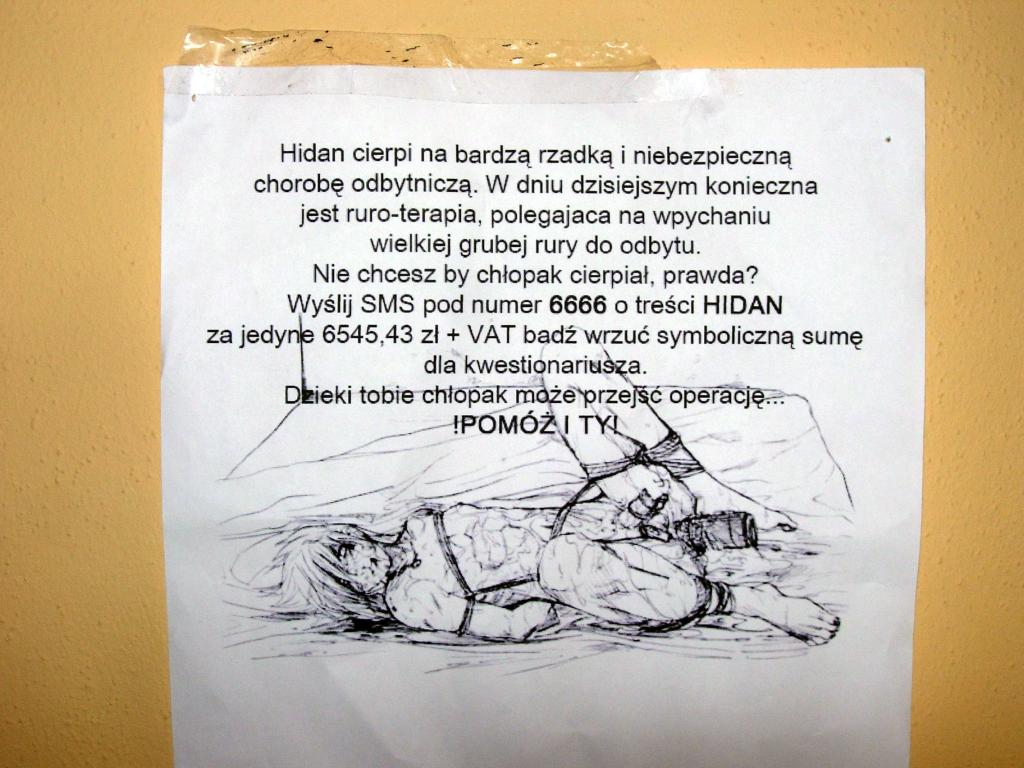 Hidan cierpi na bardzą rzadką i niebezpieczną
chorobę odbytniczą. W dniu dzisiejszym konieczna
jest ruro-terapia, polegajaca na wpychaniu
wielkiej grubej rury do odbytu.
Nie chcesz by chłopak cierpiał, prawda?
Wyślij SMS pod numer 6666 o treści HIDAN
za jedyne 6545,43 zł + VAT badź wrzuć symboliczną sumę
dla kwestionariusza.
Dzieki tobie chłopak może przejść operację...
!POMÓŻ I TY!